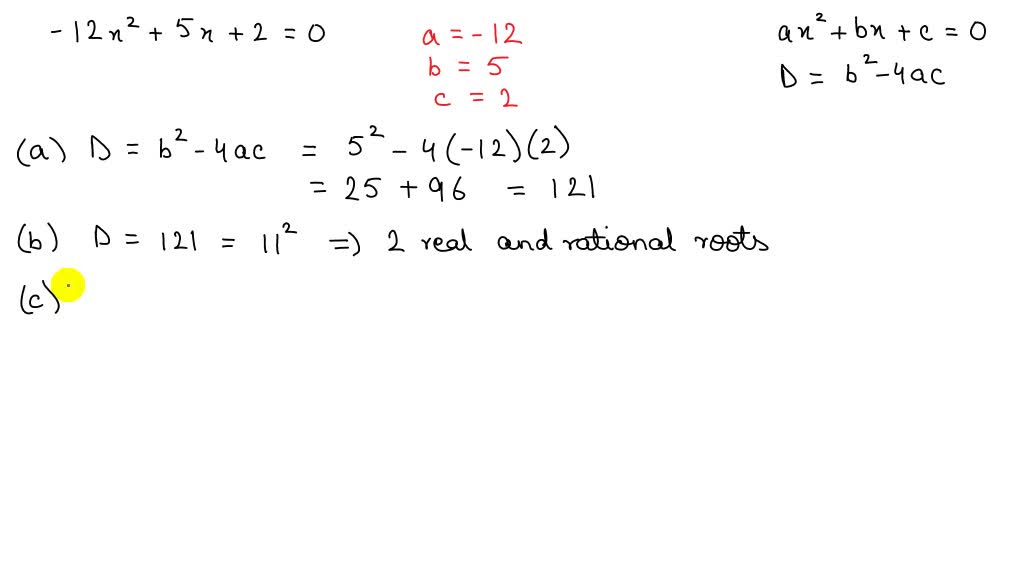 -12x² + 5x + 2 = 0
a = -12
b = 5
c = 2
ax² + bx + c = 0
D = b² - 4ac
(a) D = b² - 4ac = 5² - 4(-12)(2)
= 25 + 96 = 121
(b) D = 121 = 11² => 2 real and rational roots
(c)